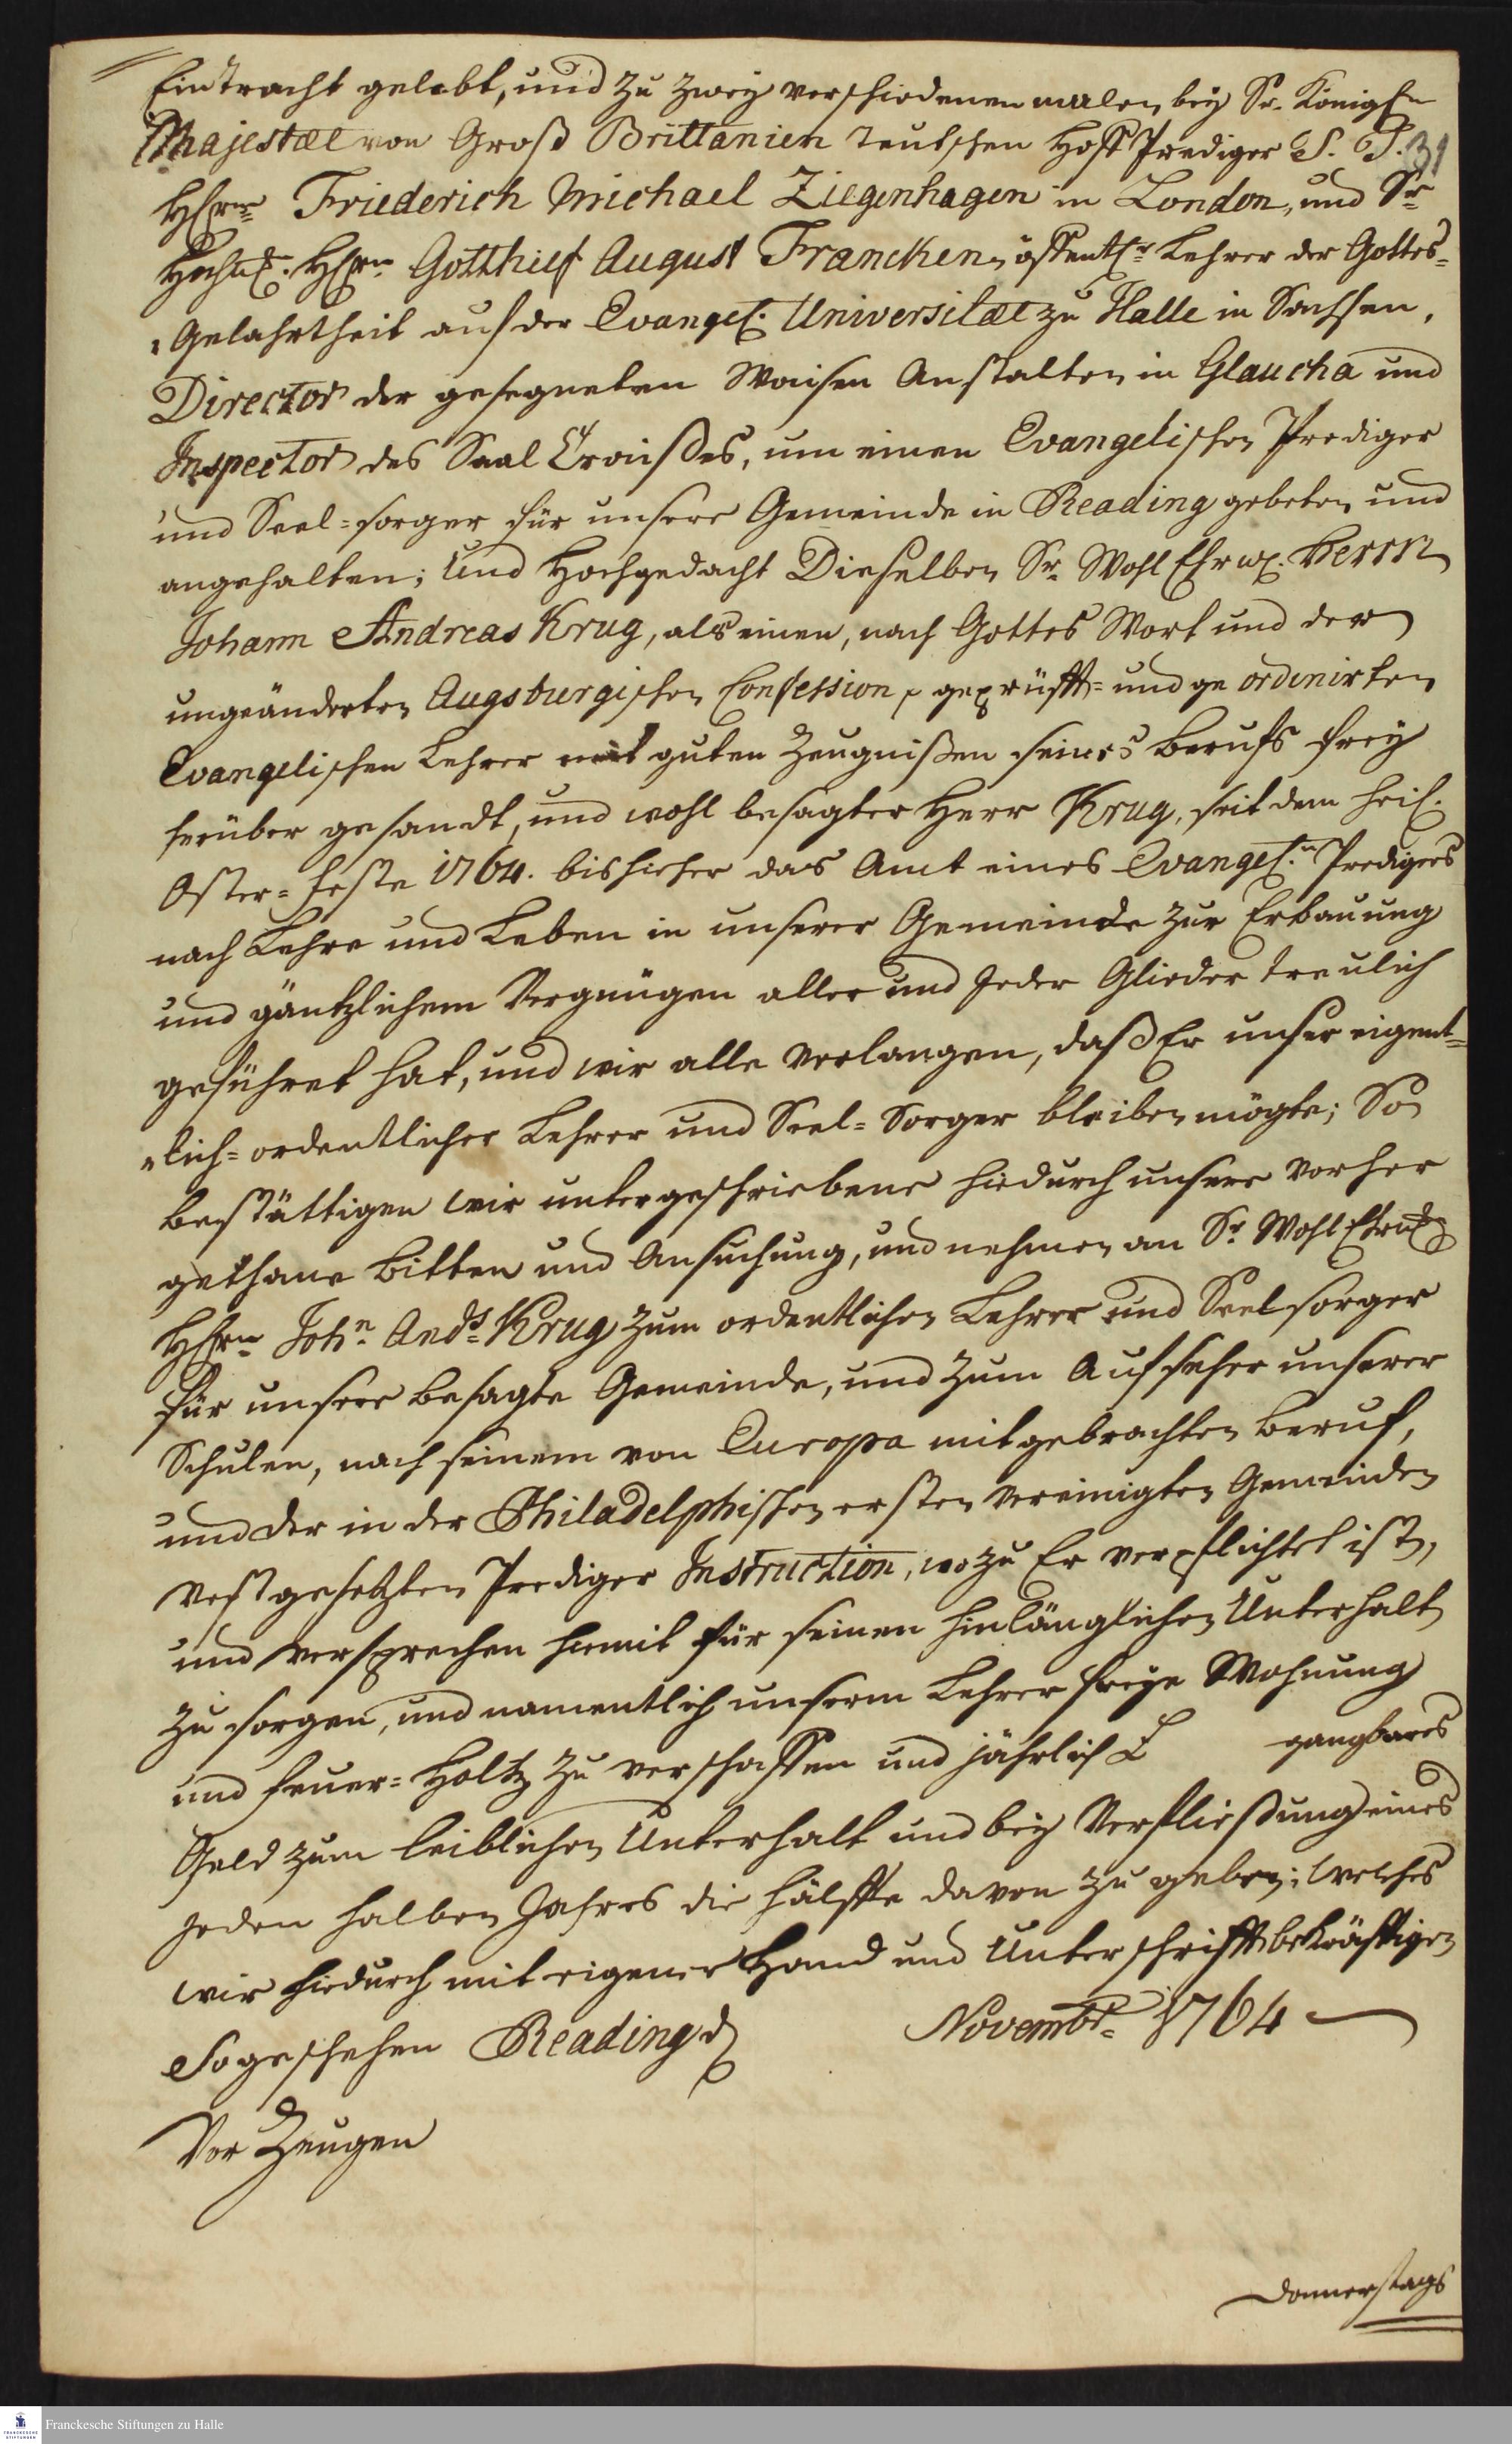 Eintracht gelebt, und zu zwey verschiedenen malen, bey Sr. Königln
Majestæt von Groß Brittanien teutschen Hoff Prediger S. T. 31
HErrn Friederich Michael Ziegenhagen in London, und Sr
Hochw. HErrn Gotthilf August Francken, öffentl. Lehrer der Gottes=
"Gelahrtheit auf der Evangel. Universitæt zu Halle in Sachsen,
Director der gesegneten Waisen Anstalten in Glaucha und
Inspector des Saal Craißes, um einen Evangelischen Prediger
und Seel=sorger für unsere Gemeinde in Reading gebeten und
angehalten; Und Hochgedacht Dieselben Sr. Wohl Ehrw. Herrn
Johann Andreas Krug, als einen, nach Gottes Wort und der
ungeänderten Augsburgischen Confession, geprüfft= und ge ordinirten
Evangelischen Lehrer mit guten Zeugnißen seines Berufs frey
herüber gesandt, und wohl besagter Herr Krug, seit dem heil.
Oster=Feste 1764. bishieher das Amt eines Evangel.n Predigers
nach Lehre und Leben in unserer Gemeinde zur Erbauung
und gäntzlichem Vergnügen aller und Jeder Glieder treulich
geführet hat, und wir alle verlangen, daß Er unser eigent=
"lich=ordentlicher Lehrer und Seel=Sorger bleiben mögte; So
bestättigen wir untergeschriebene hiedurch unsere vorher
gethane Bitten und Ansuchung, und nehmen an Sr. Wohl Ehrw
HErrn John. Ands. Krug zum ordentlichen Lehrer und Seelsorger
für unsere besagte Gemeinde, und zum Aufseher unserer
Schulen, nach seinem von Europa mitgebrachten Beruf,
und der in der Philadelphischen ersten vereinigten Gemeinden
vestgesetzten Prediger Instruction, wozu Er verpflichtet ist,
und versprechen hiemit für seinen hinlänglichen Unterhalt
zu sorgen, und namentlich unserm Lehrer freye Wohnung
und Feuer=Holtz zu verschaffen und jährlich £ gangbares
Geld zum leiblichen Unterhalt und bey Verfließung eines
Jeden halben Jahres die Hälffte davon zu geben; Welches
wir hiedurch mit eigener Hand und Unterschrifft bekräfftigen
So geschehen Reading d Novembr. 1764
Vor Zeugen
Donnerstags
Franckesche Stiftungen zu Halle
FRANCKESCHE STIFTUNGEN